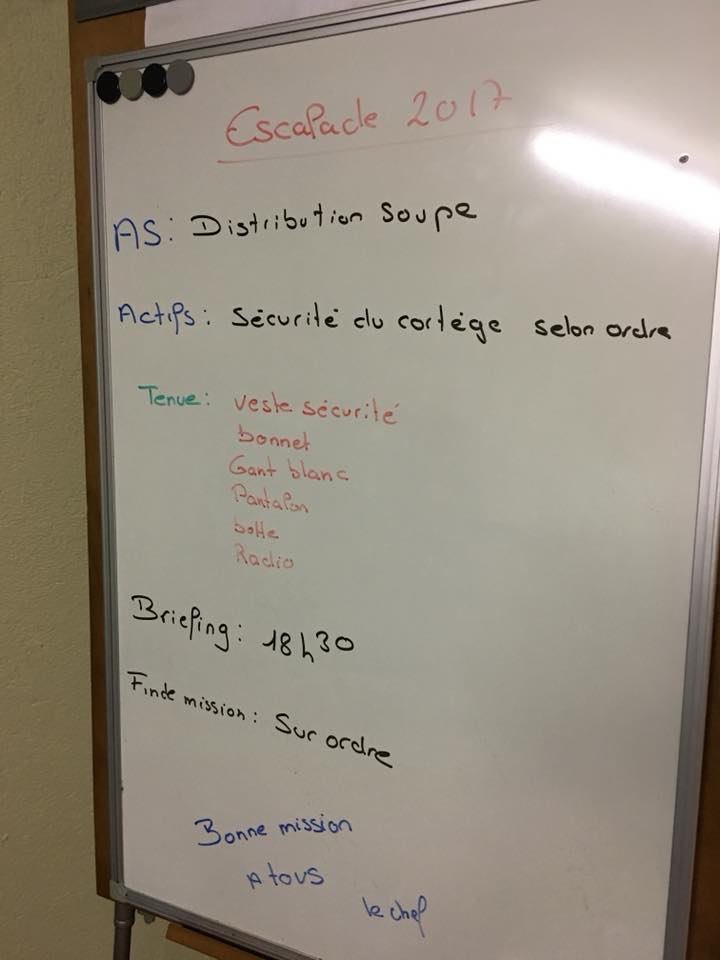 Escapade 2017
AS: Distribution soupe
Actifs: Sécurité du cortége selon ordre
Tenue: veste sécurité
bonnet
Gant blanc
Pantalon
botte
Radio
Briefing: 18h30
Fin de mission: Sur ordre
Bonne mission
A tous
le chef